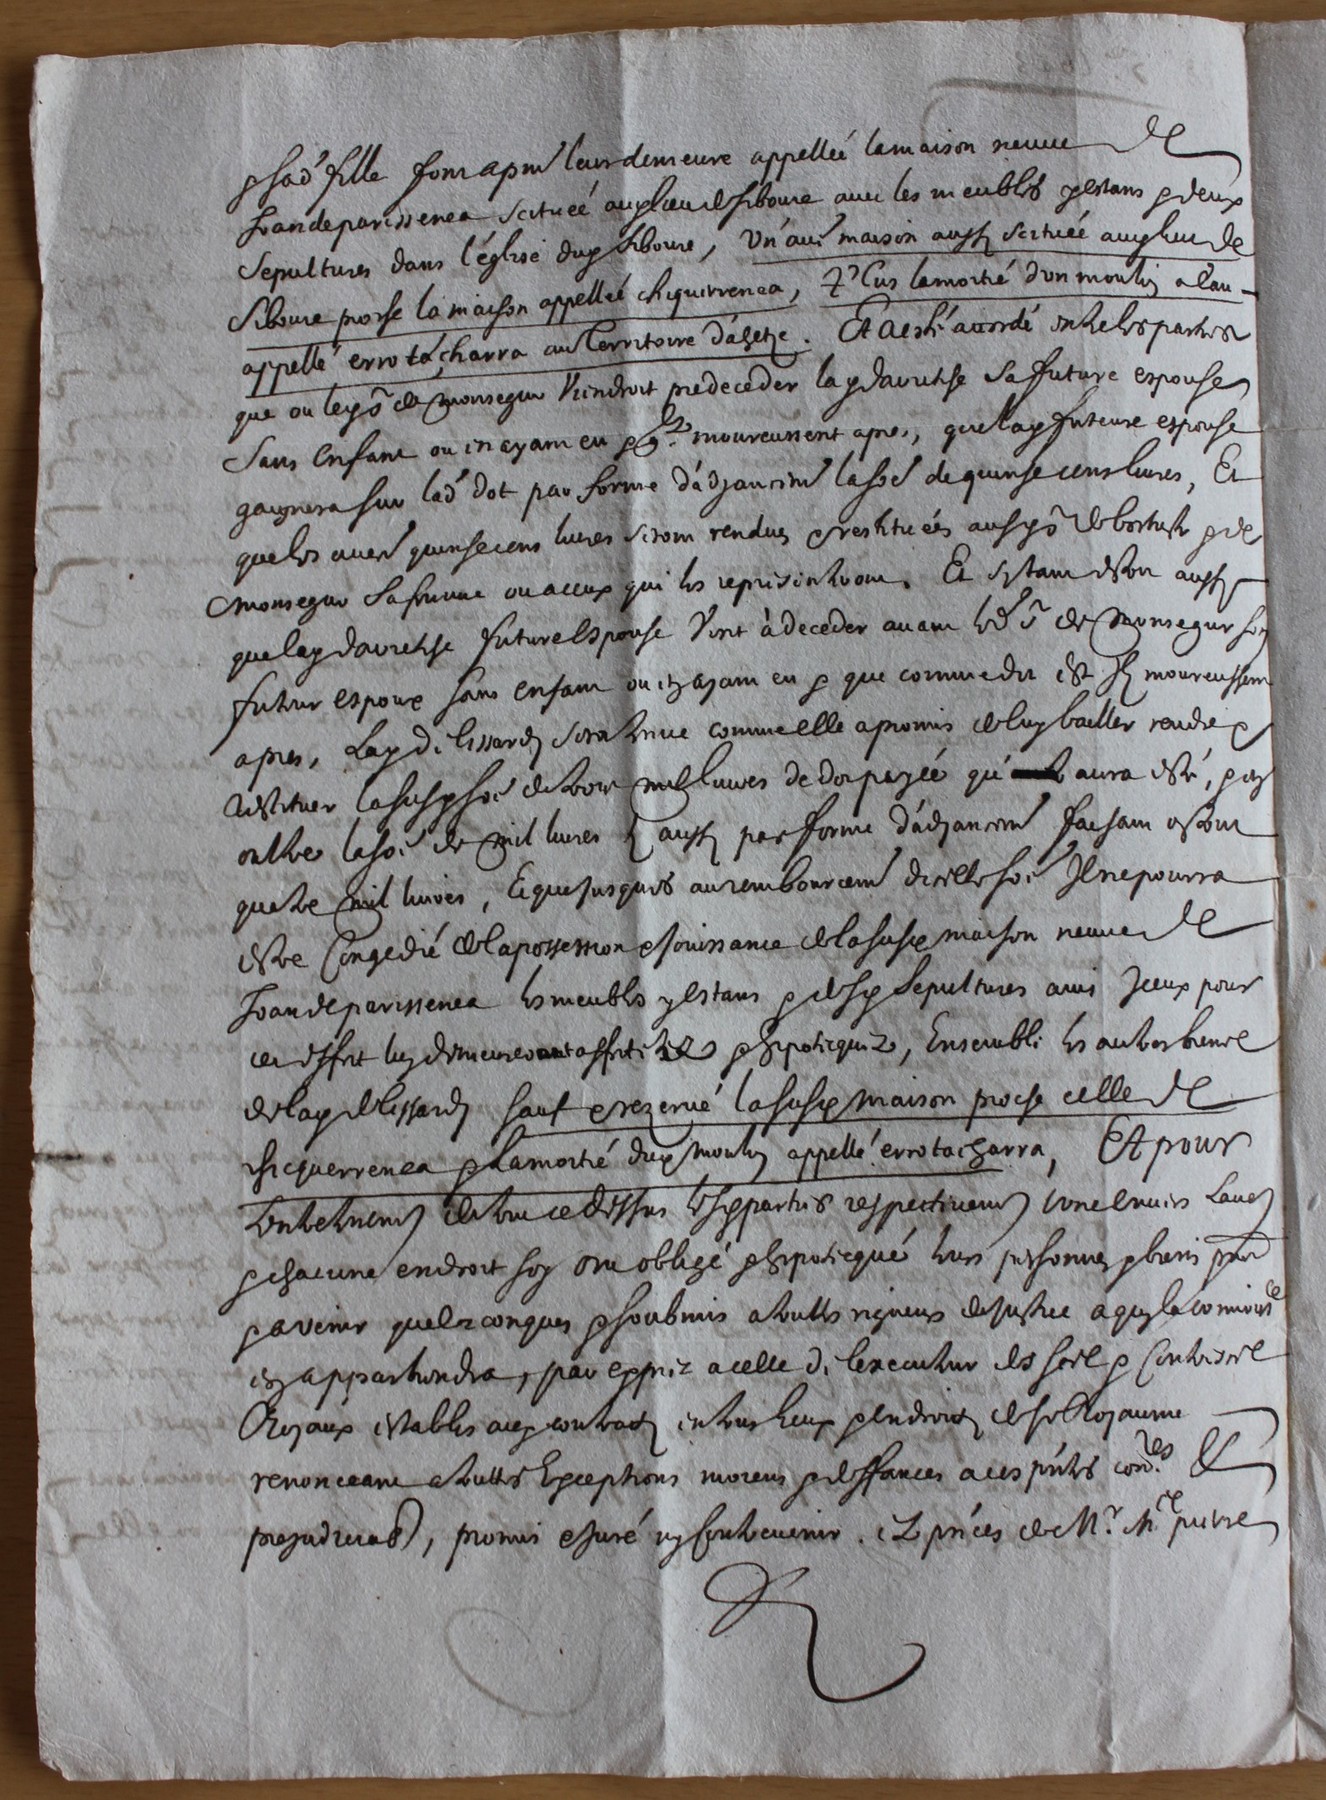 & sad' fille font apnt leur demeure appellée la maison neuve de
Joandeparissenea scituée au lieu de Siboure avec les meubles y estans & deux
sepultures dans l'église dud Siboure, Un' autre maison aussy scituée aud lieu de
Siboure proshe la maison appellée chiquirrenea, Plus la moitié d'un moulin a l'au-
appellé errotacharra au territoire d'ahetze. Et a esté acordé entre les parties
que ou led sr de Monsegur Viendroit predeceder lad daurethe sa future espouse
sans enfant ou en ayant eu moureussent apres, que lad future espouse
gaignera sur lad' dot par forme d'adjancemt la soe de quinse cens livres, Et
que les autres quinse cens livres seront rendues & restituées ausd srs de & de
Monsegur sa femme ou a ceux qui les representeront. Et sy tant estoit aussy
que lad daurethe future espouse Vint à deceder avant led sr de Monsegur son
futur espoux sans enfant ou en ayant eu & que comme dit est ilz moureussent
apres, Lad de lissardy sera tenue comme elle a promis de luy bailler rendre &
restituer la susd soe de trois mil livres de dot payée qu' aura esté, & en
outre la soe de mil livres aussy par forme d'adjancemt faisant en tout
quatre mil livres, Et que jusques au rembourcemt d'icelle soe Il ne pourra
estre Congedié de la possession & jouissance de la susd maison neuve de
Joandeparissenea les meubles y estans & desd sepultures ains Iceux pour
cet effect luy demeureront affectez & hipotequez, Ensemble les autres biens
de lad de lissardy sauf & rezervé la susd maison proche celle de
chicquerrenea & la moitié dud moulin appellé errotacharra, Et pour
l'entretenemt de tout ce dessus lesd parties respectivemt l'une envers l'autre
& chacune endroit soy ont obligé & hipotecqué leurs personnes & biens pnts
& avenir quelzconques & soubmis a toutes rigueurs de justice a quy la connoisce
en appartiendra, par exprez a celle de l'executeur des seel & Contreseel
Royaux establis aux contratz en tous lieux & endroitz de se Royaume
renonceant a touttes Exceptions moiens & deffances a ces pntes conres &
prejudicables, promis & juré n'y contrevenir. Ez pnces de Mr Me pierre